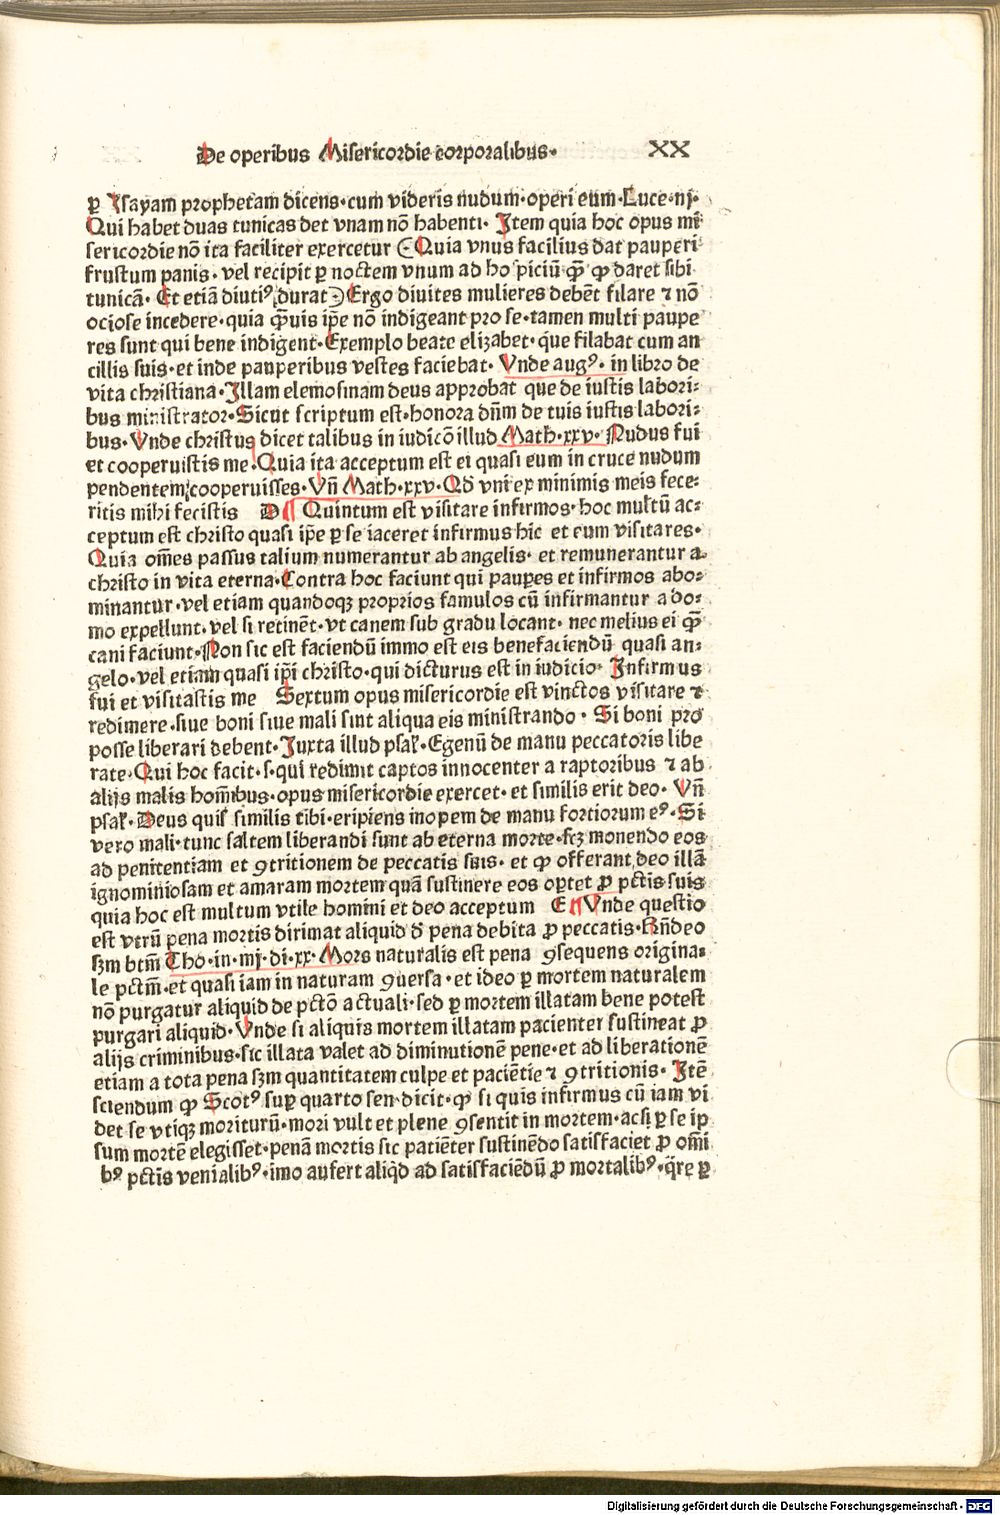 De operibus Misericordie corporalibus· XX
ꝑ Jsayam prophetam dicens·cum videris nudum·operi eum·Luce·iij·
Qui habet duas tunicas det vnam nō habenti· Jtem quia hoc opus mi⸗
sericordie nō ita faciliter exercetur (·Quia vnus facilius dat pauperi
frustum panis· vel recipit ꝑ noctem vnum ad hospiciū qm̄ ꝙ daret sibi
tunicā· Et etiā diutiꝰ durat·) Ergo diuites mulieres debēt filare ⁊ nō
ociose incedere·quia qͣuis ip̄e nō indigeant pro se·tamen multi paupe
res sunt qui bene indigent·Exemplo beate elizabet·que filabat cum an
cillis suis·et inde pauperibus vestes faciebat· Vnde augꝰ· in libro de
vita christiana·Jllam elemosinam deus approbat que de iustis labori⸗
bus ministrator·Sicut scriptum est·honora dn̄m de tuis iustis labori⸗
bus·Vnde christus dicet talibus in iudicō illud Math·xxv·Nudus fui
et cooperuistis me·Quia ita acceptum est ei quasi eum in cruce nudum
pendentem cooperuisses·Vn̄ Math·xxv·Qd̄ vni ex minimis meis fece⸗
ritis mihi fecistis D¶ Quintum est visitare infirmos·hoc multū ac⸗
ceptum est christo quasi ip̄e ꝑ se iaceret infirmus hic et eum visitares·
Quia om̄es passus talium numerantur ab angelis· et remunerantur a
christo in vita eterna·Contra hoc faciunt qui pauꝑes et infirmos abo⸗
minantur·vel etiam quandoqꝫ proprios famulos cū infirmantur a do⸗
mo expellunt·vel si retinēt·vt canem sub gradu locant· nec melius ei qm̄
cani faciunt·Non sic est faciendū immo est eis benefaciendū quasi an⸗
gelo·vel etiam quasi ip̄i christo·qui dicturus est in iudicio· Jnfirmus
fui et visitastis me Sextum opus misericordie est vinctos visitare ⁊
redimere·siue boni siue mali sint aliqua eis ministrando· Si boni pro
posse liberari debent·Juxta illud psal̄·Egenū de manu peccatoris libe
rate·Qui hoc facit·s·qui redimit captos innocenter a raptoribus ⁊ ab
alijs malis hom̄ibus·opus misericordie exercet·et similis erit deo· Vn̄
psal̄·Deus quis similis tibi·eripiens inopem de manu fortiorum eꝰ·Si
vero mali·tunc saltem liberandi sunt ab eterna morte·scꝫ monendo eos
ad penitentiam et ꝯtritionem de peccatis suis· et ꝙ offerant deo illā
ignominiosam et amaram mortem quā sustinere eos oꝑtet ꝓ pctis suis
quia hoc est multum vtile homini et deo acceptum E¶ Vnde questio
est vtrū pena mortis dirimat aliquid d̄ pena debita ꝓ peccatis·Rn̄deo
sꝫm btm̄ Tho·in·iiij·di·xx·Mors naturalis est pena ꝯsequens origina⸗
le pctm̄·et quasi iam in naturam ꝯuersa·et ideo ꝑ mortem naturalem
nō purgatur aliquid de pctō actuali·sed ꝑ mortem illatam bene potest
purgari aliquid·Vnde si aliquis mortem illatam pacienter sustineat ꝓ
alijs criminibus·sic illata valet ad diminutionē pene·et ad liberationē
etiam a tota pena sꝫm quantitatem culpe et paciētie ⁊ ꝯtritionis· Jtē
sciendum ꝙ Scotꝰ suꝑ quarto sen·dicit·ꝙ si quis infirmus cū iam vi
det se vtiqꝫ moriturū·mori vult et plene ꝯsentit in mortem·acsi ꝑ se ip
sum mortē elegisset·penā mortis sic patiēter sustinēdo satisfaciet ꝓ om̄i
bꝰ pctis venialibꝰ·imo aufert aliqd̄ ad satisfaciēdū ꝓ mortalibꝰ·qͣre ꝑ
Digitalisierung gefördert durch die Deutsche Forschungsgemeinschaft - DFG